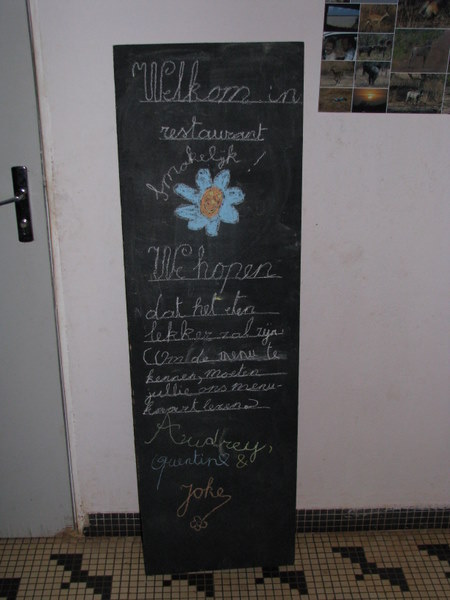 Welkom in
restaurant
Smakelijk!
We hopen
dat het eten
lekker zal zijn.
(Om de menu te
kennen, moeten
jullie ons menu-
kaart leren.)
Audrey,
Quentin &
Joke